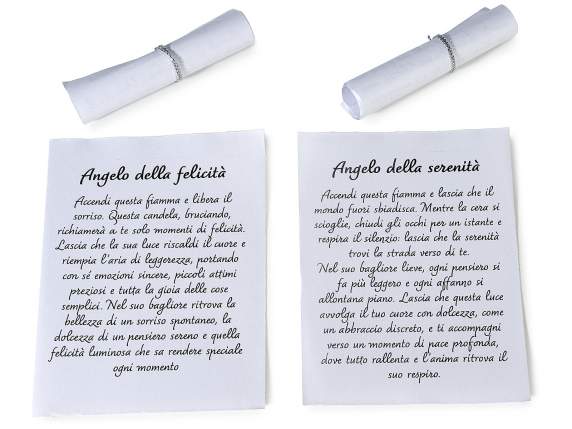 Angelo della felicità
Accendi questa fiamma e libera il
sorriso. Questa candela, bruciando,
richiamerà a te solo momenti di felicità.
Lascia che la sua luce riscaldi il cuore e
riempia l'aria di leggerezza, portando
con sé emozioni sincere, piccoli attimi
preziosi e tutta la gioia delle cose
semplici. Nel suo bagliore ritrova la
bellezza di un sorriso spontaneo, la
dolcezza di un pensiero sereno e quella
felicità luminosa che sa rendere speciale
ogni momento
Angelo della serenità
Accendi questa fiamma e lascia che il
mondo fuori sbiadisca. Mentre la cera si
scioglie, chiudi gli occhi per un istante e
respira il silenzio: lascia che la serenità
trovi la strada verso di te.
Nel suo bagliore lieve, ogni pensiero si
fa più leggero e ogni affanno si
allontana piano. Lascia che questa luce
avvolga il tuo cuore con dolcezza, come
un abbraccio discreto, e ti accompagni
verso un momento di pace profonda,
dove tutto rallenta e l'anima ritrova il
suo respiro.